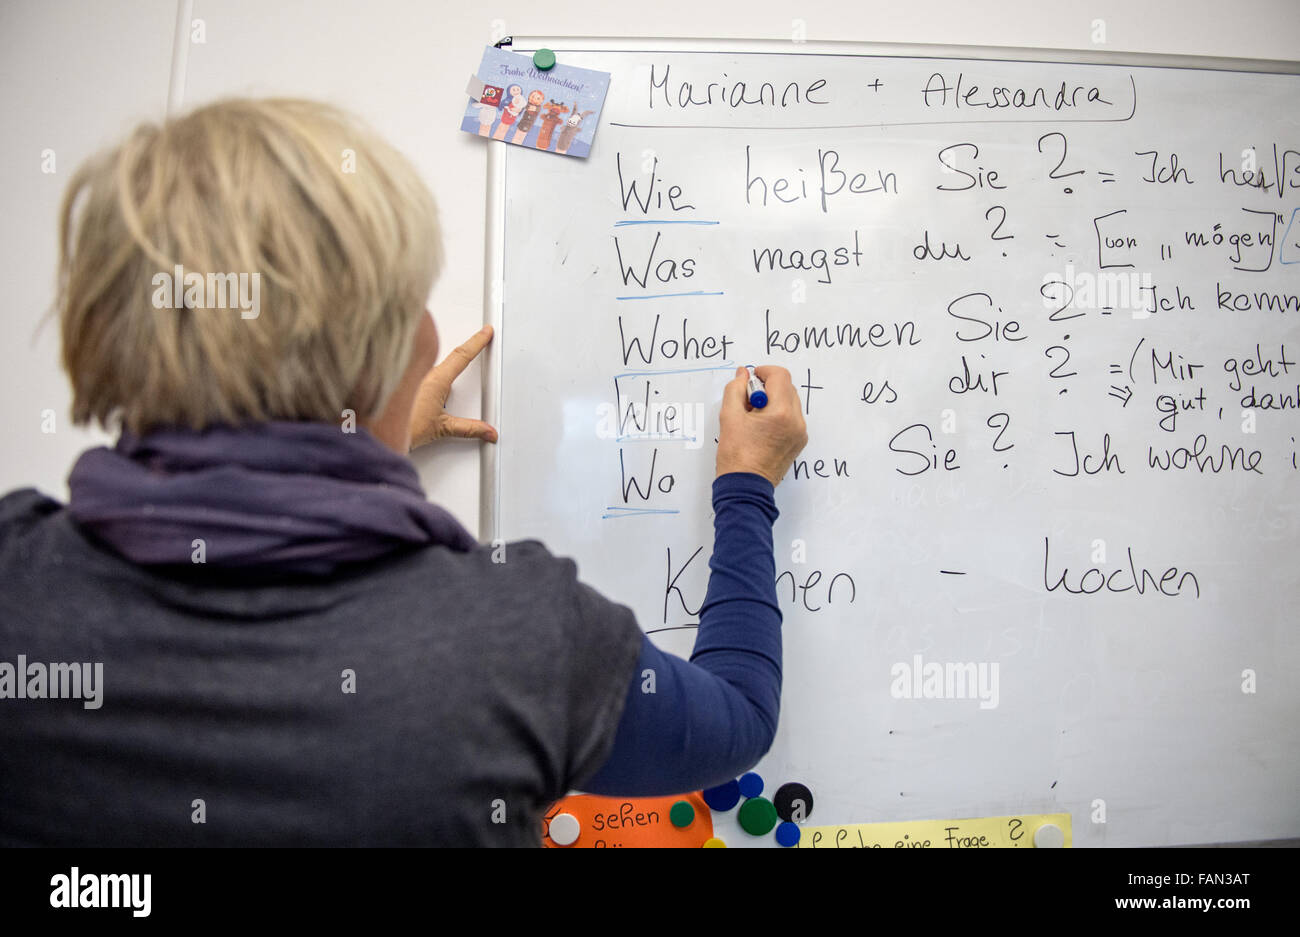 Frohe Weihnachten!
Marianne + Alessandra)
Wie heißen Sie? = Ich heiß
Was magst du? = [von „mögen"]
Woher kommen Sie? = Ich komm
Wie t es dir? = (Mir geht
⇒ gut, dank
Wo nen Sie? Ich wohne i
K nen - kochen
sehen
eine Frage ?
alamy
a
alamy stock photo
Image ID: FAN3AT
www.alamy.com